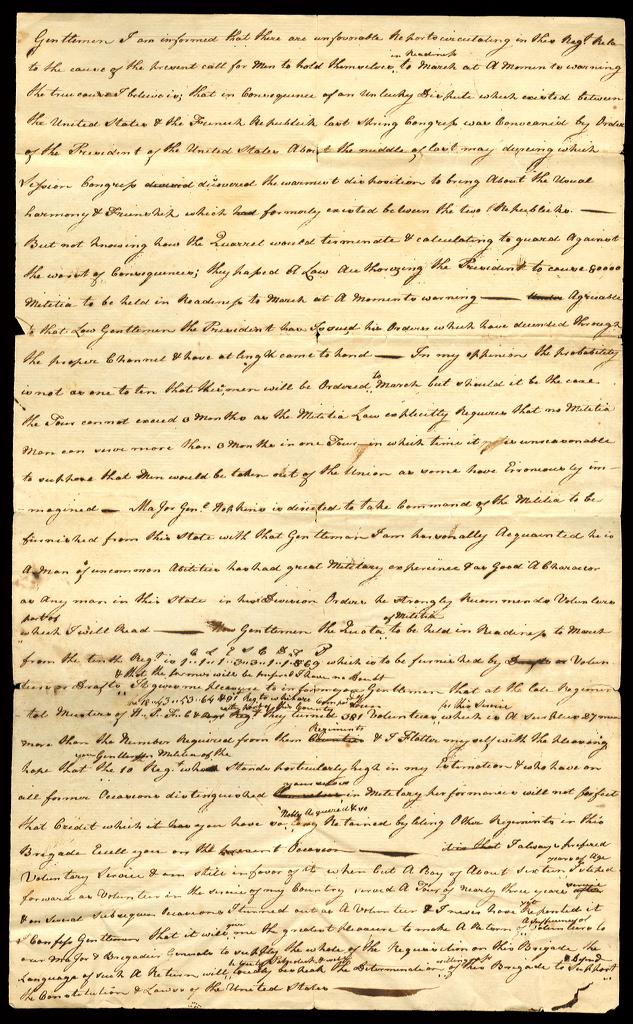 Gentlemen I am informed that there are unfavorable Reports circulating in this Regt. Rela
in Readiness
to the cause of the present call for Men to hold themselves to March at A Moments warning
the true cause I beleive is; that in Consequence of an Unlucky Dispute which existed between
the United States & the French Republick last Spring Congress was Convened by Order
of the President of the United States About the middle of last may dureing which
Session Congress discovered the warmest disposition to bring About the Usual
harmony & Frienship which had formerly existed between the two Republicks. —
But not knowing how the Quarrel would termindte & calculating to guard Against
the worst of Consequences; they passed A Law Authorizing the President to cause 80000
Militia to be held in Readiness to March at A Moments warning — Agreeable
to that Law Gentlemen the President has Issued his Orders which have decended through
the proper Channel & have at length come to hand — In my oppinion the probability
to
is not as one to ten that these men will be Ordered March but should it be the case
the Tour cannot exceed 3 Months as the Militia Law explicitly Requires that no Militia
Man can serve more than 3 Months in one Tour in which time it is unreasonable
to suppose that Men would be taken out of the Union as some have Erroneously im-
magined — Major Genl. Hopkins is directed to take Command of the Militia to be
furnished from this State with that Gentleman I am personally Acquainted he is
A Man of uncommon Abilities has had great Military experience & as Good A Character
as Any man in this State in his Division Orders he strongly Recommends Volunteers
part of
which I will Read — Now Gentlemen the Quota to be held in Readiness to March
of Militia
from the tenth Regt. is 1..1..1..3..3..1..1..56 which is to be furnished by Volun
& that the former will be prefered I have no Doubt
teers or Drafts It gives me pleasure to inform you Gentlemen that at the late Regimen
for this Service
tal Musters of they turned 381 Volunteers which is A Surplus 27 men
Regiments
more than the Number Required from them & I Flatter myself with the pleasing
you Gentlemen Militia of the
hope that the 10 Regt. Stands particularly high in my Estimation & who have on
yourselves
all former Occasions distinguished in Military performances will not forfeit
Nobly Acquired & so
that Credit which you have long Retained by leting Other Regiments in this
Brigade Excell you on the present Occasion — I always prefered
years of Age
Voluntary Service & am still in favor of it when but A Boy of About sixteen I steped
forward as Volunteer in the Service of my Country served A Tour of nearly three years
& on several Subsequen Occasions I turned out as A Volunteer & I never have Repented it
give
I Confess Gentlemen that it will me the greatest pleasure to make A Return of Volunteers to
a sufficiency of
our Major & Brigadier Generals to supply the whole of the Requisition on this Brigade the
Language of such A Return will loudly bespeak the Determination of this Brigade to Support
& Defend
the Constitution & Laws of the United States —